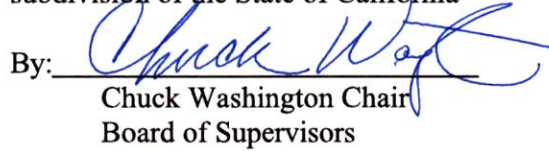 subdivision of the State of California
By: Chuck Wa
Chuck Washington Chair
Board of Supervisors